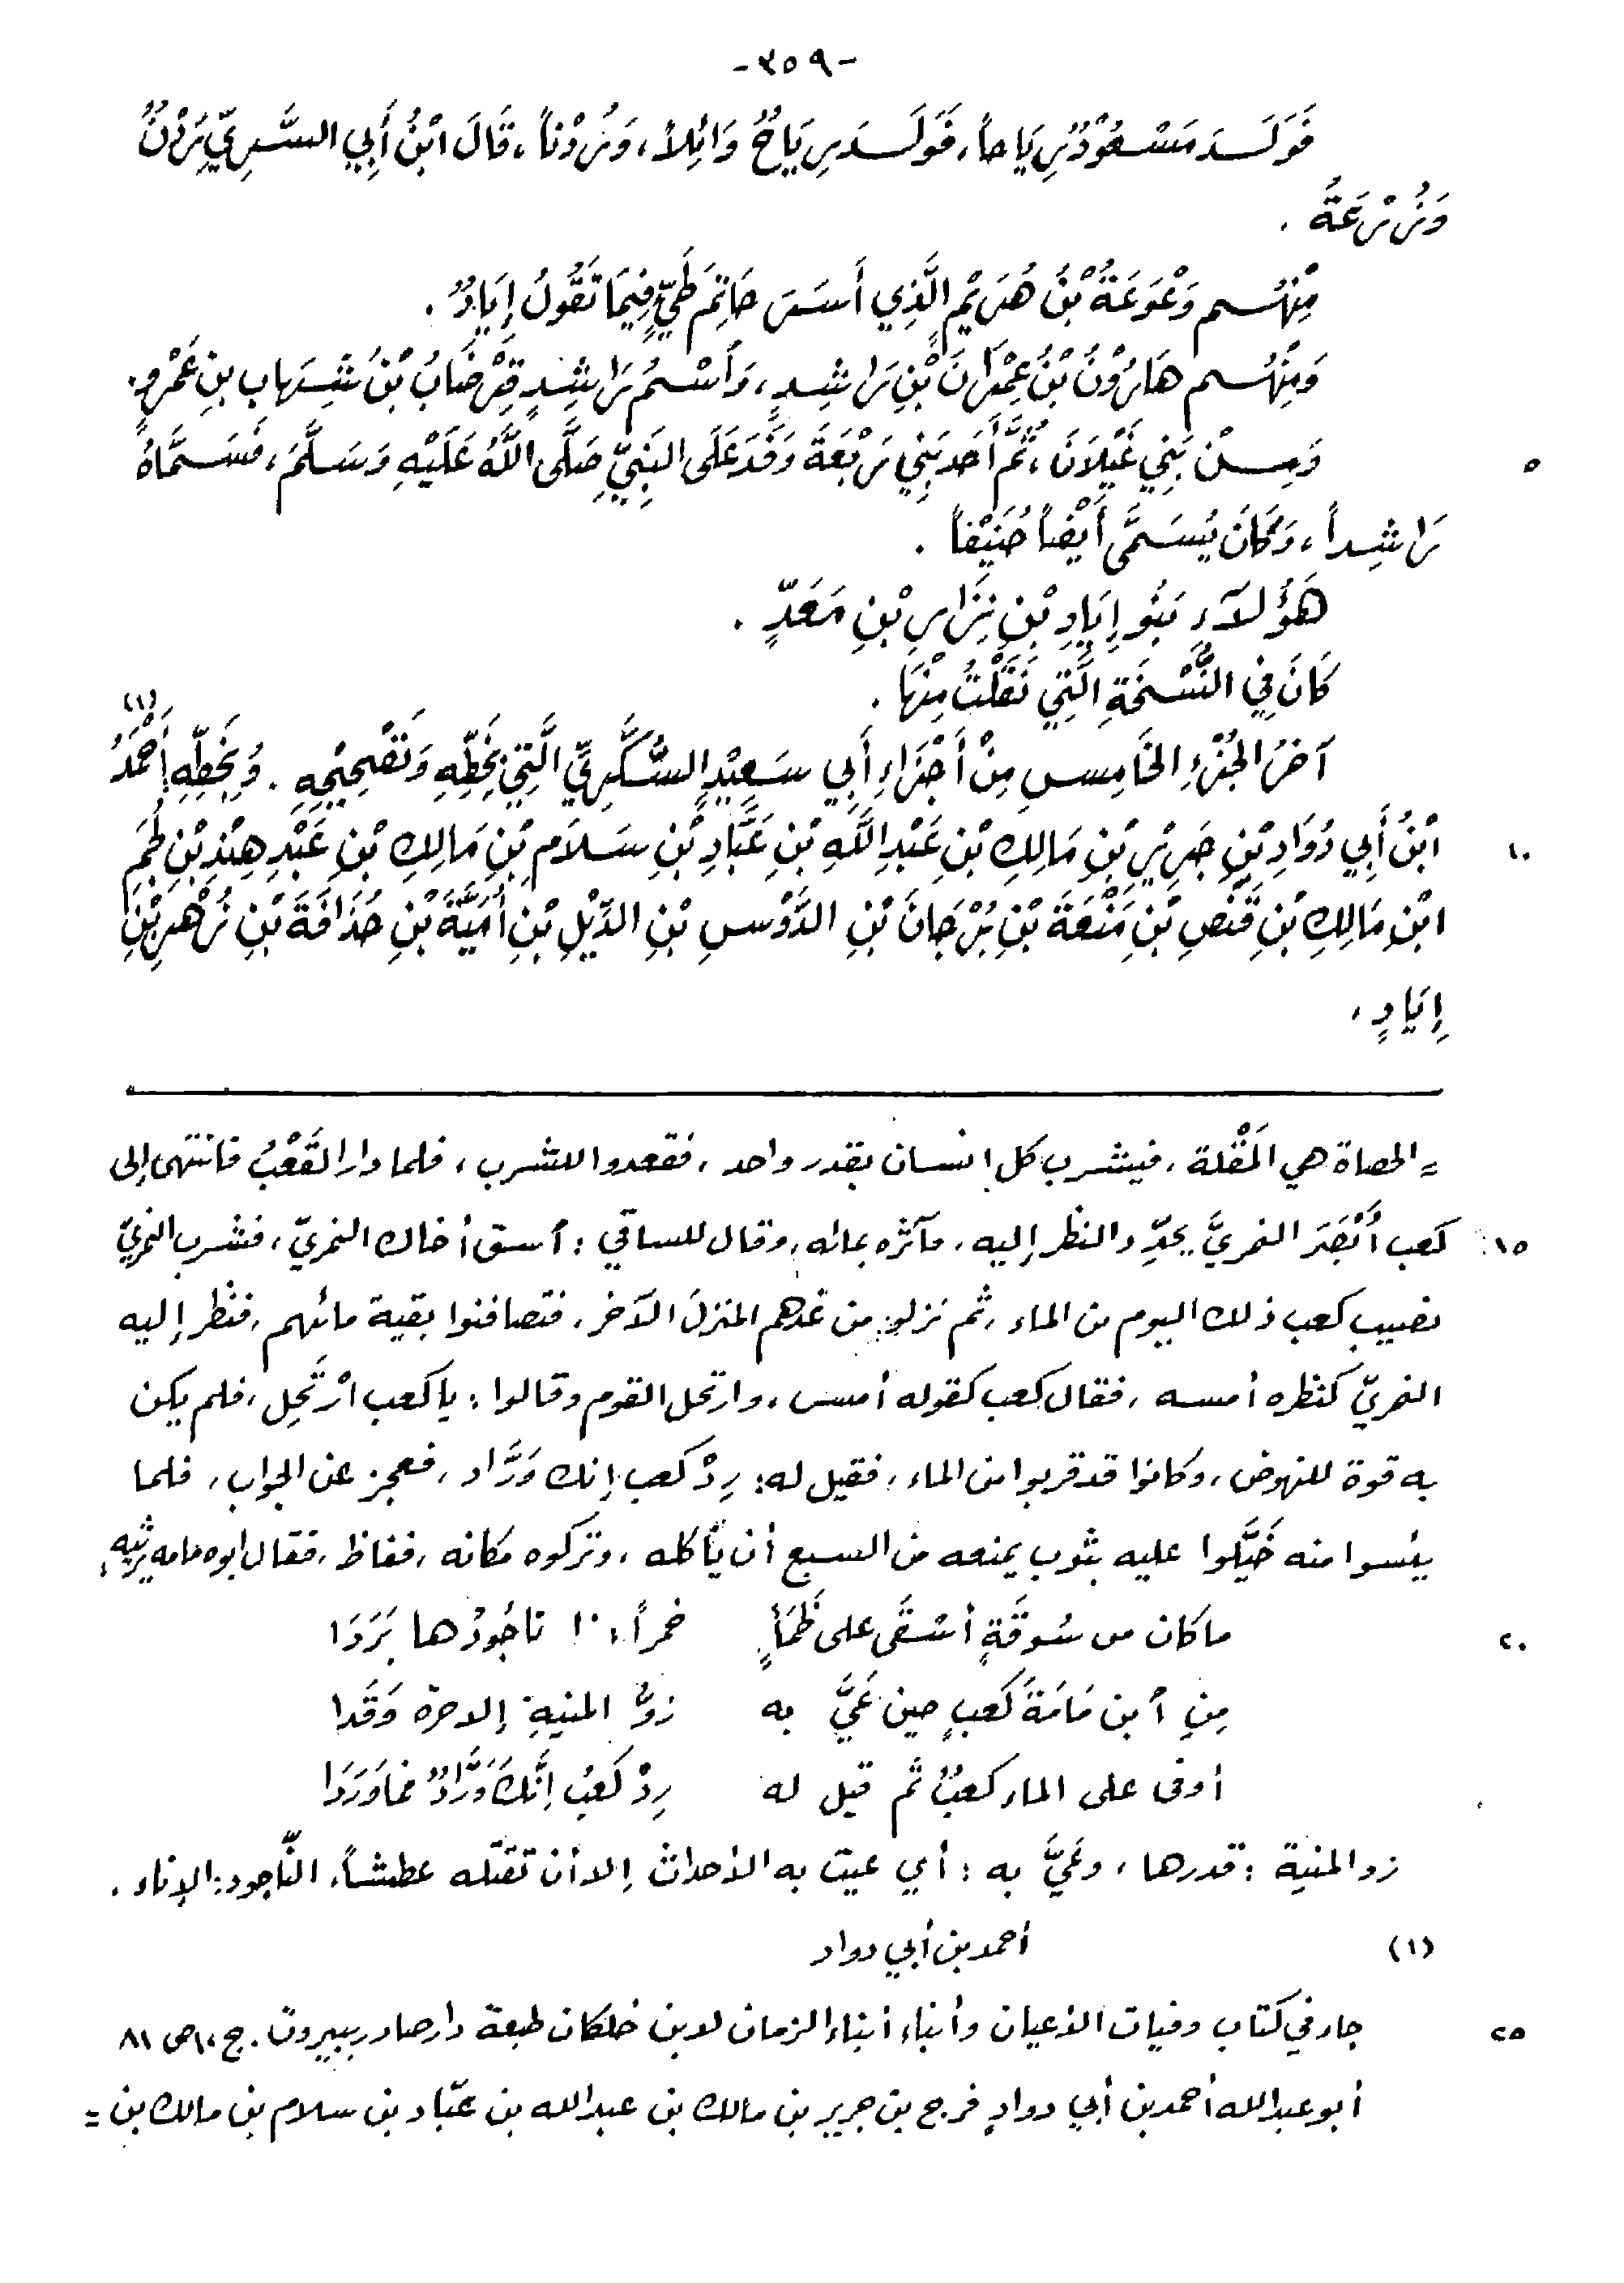 -٣٥٩-
فَوَلَـدَ مَسْعُوْدٌ رِيَاحاً، فَوَلَـدَ رِيَاحٌ وَائِلاً، وَزُدْناً، قَالَ ابْنُ أَبِي السَّرِيِّ زُدْنٌ
وَزُرْعَةُ .
مِنْهُـم وَعْوَعَةُ بْنُ هُرَيْمٍ الَّذِي أَسَـرَ حَاتِمَ طَيٍّ فِيمَا تَقُولُ إِيَادٌ .
وَمِنْهُـم هَارُوْنُ بْنُ عِمْرَانَ بْنِ رَاشِـدٍ، وَاسْـمُ رَاشِـدٍ قِرْضَابُ بْنُ شِـهَابِ بنِ عَمْرٍو.
٥ وَمِـنْ بَنِي غَيْلَانَ، ثُمَّ أَحَدِ بَنِي رَبْعَةَ وَفَدَ عَلَى النَبِيِّ صَلَّى اللَّهُ عَلَيْهِ وَسَلَّمَ، فَسَـمَّاهُ
رَاشِـداً، وَكَانَ يُسَـمَّى أَيْضاً حُنَيْفاً .
هَؤُلَآءِ بَنُو إِيَادِ بْنِ نِزَارِ بْنِ مَعَدٍّ .
كَانَ فِي النُّسْـخَةِ الَّتِي نَقَلْتُ مِنْهَا .
آخِرُ الجُزْءِ الخَامِسِ مِنْ أَجْزَاءِ أَبِي سَعِيْدٍ السُّكَّرِيِّ الَّتِي بِخَطِّهِ وَتَصْحِيْحِهِ . وَبِخَطِّهِ أَحْمَدُ (١)
١٠ ابْنُ أَبِي دُوَادِ بْنِ جَرِيْرِ بْنِ مَالِكِ بْنِ عَبْدِ اللَّهِ بْنِ عَبَّادِ بْنِ سَـلَامِ بْنِ مَالِكِ بْنِ عَبْدِ هِنْدِ بْنِ لُحَمِ
ابْنِ مَالِكِ بْنِ قَنَصِ بْنِ مَنْعَةَ بْنِ بُرْجَانَ بْنِ الدَّوْسِ بْنِ الدَّيْلِ بْنِ أُمَيَّةَ بْنِ حُذَافَةَ بْنِ زُهْرِ بْنِ
إِيَادٍ،
= الحصاة هي المَقْلة، فيشرب كل إنسان بقدر واحد، فقعدوا للشرب، فلما دار القَعْبُ فانتهى إلى
١٥ كعب أَبْصَرَ النمريَّ يحدِّد النظر إليه، فآثره بمائه، وقال للساقي: أسق أخاك النمريّ، فشرب النمريّ
نصيب كعب ذلك اليوم من الماء، ثم نزلوا من غدهم المنزلَ الآخر، فتصافنوا بقية مائهم، فنظر إليه
النمريّ كنظره أمسه، فقال كعب كقوله أمس، وارتحل القوم وقالوا: ياكعب ارْتَحِل، فلم يكن
به قوة للنهوض، وكانوا قد قربوا من الماء، فقيل له: رِدْ كعب إنك وَرَّاد، فعجز عن الجواب، فلما
يئسوا منه خَيَّلوا عليه بثوب يمنعه من السبع أن يأكله، وتركوه مكانه، ففاظ، فقال أبوه مامه يرثيه:
٢٠ ما كان من سُوقَةٍ أسْقَى على ظَمَأٍ خمراً إذا ناجُودُها بَرَدَا
مِنِ أبن مَامَةَ كَعبٍ حين عَيَّ به زوُّ المنيةِ إلا حرة وَقَدا
أوفى على الماء كعبٌ ثم قيل له رِدْ كَعْبُ إنَّكَ وَرَّادٌ فما وَرَدَا
زو المنية: قدرها، وعَيَّ به: أي عيت به الأحداث إلا أن تقتله عطشاً، النّاجود: الإناء.
(١) أحمد بن أبي دواد
٢٥ جاء في كتاب وفيات الأعيان وأنباء أبناء الزمان لابن خلكان طبعة دار صادر ببيروت. ج،١ ص ٨١
أبو عبد الله أحمد بن أبي دوادٍ فرج بن جرير بن مالك بن عبد الله بن عبّاد بن سلام بن مالك بن =